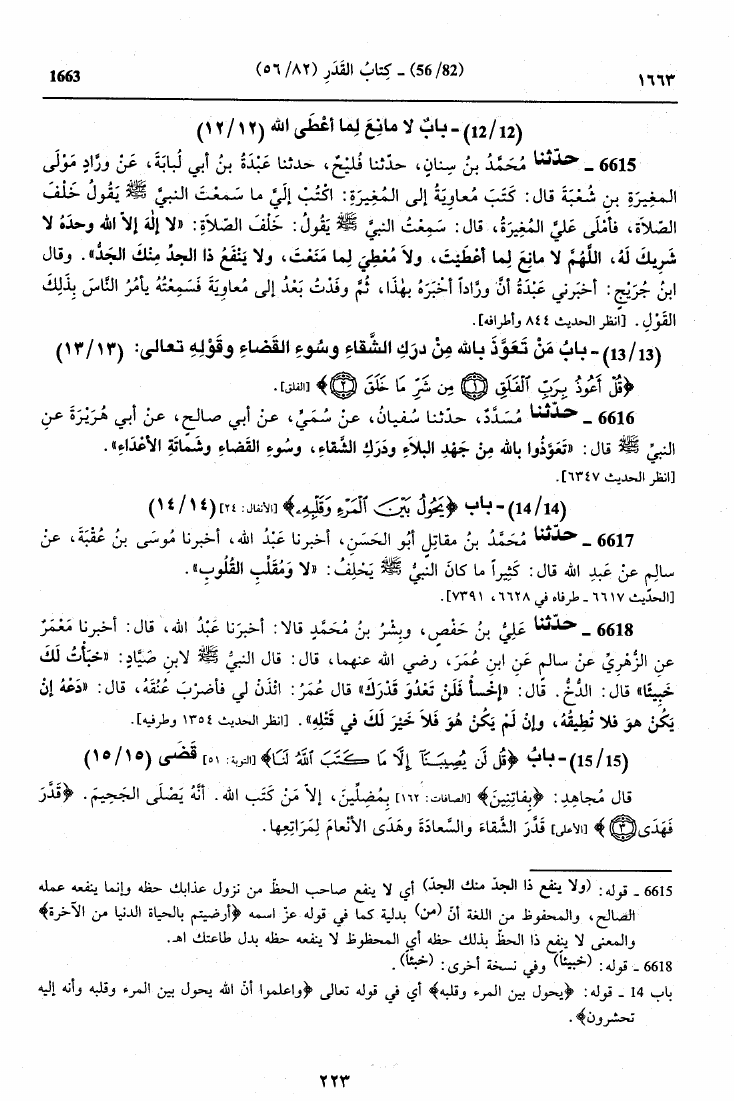 ١٦٦٣ (56/82) ـ كِتابُ القَدَرِ (٥٦/٨٢) 1663
(12/12) - بابٌ لا مانِعَ لِما أعْطَى الله (١٢/١٢)
6615 ـ حدّثنا مُحَمَّدُ بنُ سِنانٍ، حدّثنا فُلَيْحٌ، حدثنا عَبْدَةُ بنُ أبي لُبابَةَ، عَنْ ورَّادٍ مَوْلَى
المغِيرَةِ بنِ شُعْبَةَ قال: كَتَبَ مُعاوِيَةُ إلى المُغِيرَةِ: اكْتُبْ إلَيَّ ما سَمِعْتَ النبيَّ ﷺ يَقُولُ خَلْفَ
الصّلاة، فأمْلَى عَلَيَّ المُغِيرَةُ، قال: سَمِعْتُ النبيَّ ﷺ يَقُولُ: خَلْفَ الصّلاَةِ: «لا إلٰهَ إلاَّ الله وحدَهُ لا
شَرِيكَ لَهُ، اللَّهُمَّ لا مانِعَ لِما أعْطَيْتَ، ولاَ مُعْطِيَ لِما مَنَعْتَ، ولا يَنْفَعُ ذا الجدِّ مِنْكَ الجَدُّ». وقال
ابنُ جُرَيْجٍ: أخبَرني عَبْدَةُ أنَّ ورَّاداً أخْبَرَهُ بِهٰذا، ثُمَّ وفَدْتُ بَعْدُ إلى مُعاوِيَةَ فَسَمِعْتُهُ يأمُرُ النَّاسَ بِذَلِكَ
القَوْلِ. [انظر الحديث ٨٤٤ وأطرافه].
(13/13) - بابُ مَنْ تَعَوَّذَ بالله مِنْ دَرَكِ الشَّقاءِ وسُوءِ القَضاءِ وقَوْلِهِ تعالى: (١٣/١٣)
﴿قُلْ أَعُوذُ بِرَبِّ ٱلْفَلَقِ ۝١ مِن شَرِّ مَا خَلَقَ ۝٢﴾ [الفلق].
6616 ـ حدّثنا مُسَدَّدٌ، حدّثنا سُفيانُ، عنْ سُمَيٍّ، عنْ أبي صالحٍ، عنْ أبي هُرَيْرَةَ عنِ
النبيِّ ﷺ قال: «تَعَوَّذُوا بالله مِنْ جَهْدِ البلاَءِ ودَرَكِ الشَّقاءِ، وسُوءِ القَضاءِ وشَماتَةِ الأعْداءِ».
[انظر الحديث ٦٣٤٧].
(14/14) - باب ﴿يَحُولُ بَيْنَ ٱلْمَرْءِ وَقَلْبِهِۦ﴾ [الأنفال: ٢٤] (١٤/١٤)
6617 ـ حدّثنا مُحَمَّدُ بنُ مقاتِلٍ أبُو الحَسَنِ، أخبرنا عَبْدُ الله، أخبرنا مُوسَى بنُ عُقْبَةَ، عنْ
سالِمٍ عنْ عَبدِ الله قال: كَثِيراً ما كانَ النبيُّ ﷺ يَحْلِفُ: «لا وَمُقَلِّبِ القُلُوبِ».
[الحديث ٦٦١٧ ـ طرفاه في ٦٦٢٨، ٧٣٩١].
6618 ـ حدّثنا عَلِيُّ بنُ حَفْصٍ، وبِشْرُ بنُ مُحَمَّدٍ قالا: أخبرَنا عَبْدُ الله، قال: أخبرنا مَعْمَرٌ
عنِ الزُّهْرِيِّ عنْ سالمٍ عَنِ ابنِ عُمَرَ، رضي الله عنهما، قال: قال النبيُّ ﷺ لابنِ صَيَّادٍ: «خَبأْتُ لَكَ
خَبِيئًا» قال: الدُّخُّ. قال: «إخْسأْ فَلَنْ تَعْدُوَ قَدْرَكَ» قال عُمَرُ: ائْذَنْ لي فأضْرِبَ عُنُقَهُ، قال: «دَعْهُ إنْ
يَكُنْ هوَ فلا تُطِيقُهُ، وإنْ لَمْ يَكُنْ هُوَ فَلاَ خَيْرَ لَكَ في قَتْلِهِ». [انظر الحديث ١٣٥٤ وطرفيه].
(15/15) - بابُ ﴿قُل لَّن يُصِيبَنَآ إِلَّا مَا كَتَبَ ٱللَّهُ لَنَا﴾ [التوبة: ٥١] قَضَى (١٥/١٥)
قال مُجاهِدٌ: ﴿بِفاتِنِينَ﴾ [الصافات: ١٦٢] بِمُضِلِّينَ، إلاَّ مَنْ كَتَب الله. أنَّهُ يَصْلَى الجَحِيمَ. ﴿قَدَّرَ
فَهَدَى ۝٣﴾ [الأعلى] قَدَّرَ الشَّقاءَ والسَّعادَةَ وهَدَى الأنْعامَ لِمَرَاتِعِها.
6615 ـ قوله: (ولا ينفع ذا الجدّ منك الجدّ) أي لا ينفع صاحب الحظّ من نزول عذابك حظه وإنما ينفعه عمله
الصالح، والمحفوظ من اللغة أنّ (من) بدلية كما في قوله عزّ اسمه ﴿أرضيتم بالحياة الدنيا من الآخرة﴾
والمعنى لا ينفع ذا الحظّ بذلك حظه أي المحظوظ لا ينفعه حظه بدل طاعتك اهـ.
6618 ـ قوله: (خبيئاً) وفي نسخة أخرى: (خبئاً).
باب 14 ـ قوله: ﴿يحول بين المرء وقلبه﴾ أي في قوله تعالى ﴿واعلموا أنّ الله يحول بين المرء وقلبه وأنه إليه
تحشرون﴾.
٢٢٣